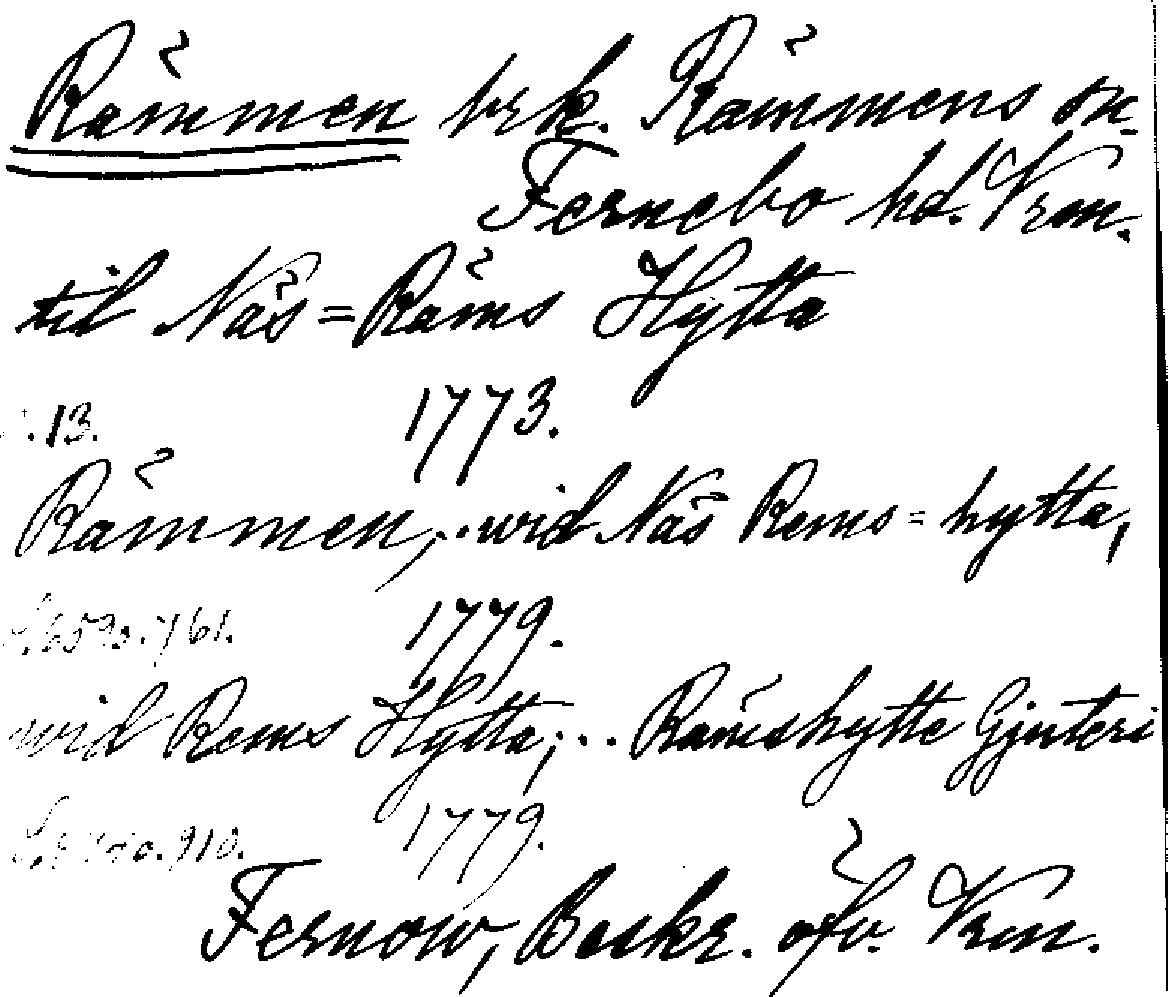 Rämmen brk. Rämmens sn.
Fernebo hd. Vrm.
til Näs=Räms Hytta
.13. 1773.
Rämmen,.. wid Näs Rems=hytta,
761. 1779.
wid Rems Hytta;.. Rämshytte Gjuteri
910. 1779.
Fernow, Beskr. öfv. Vrm.